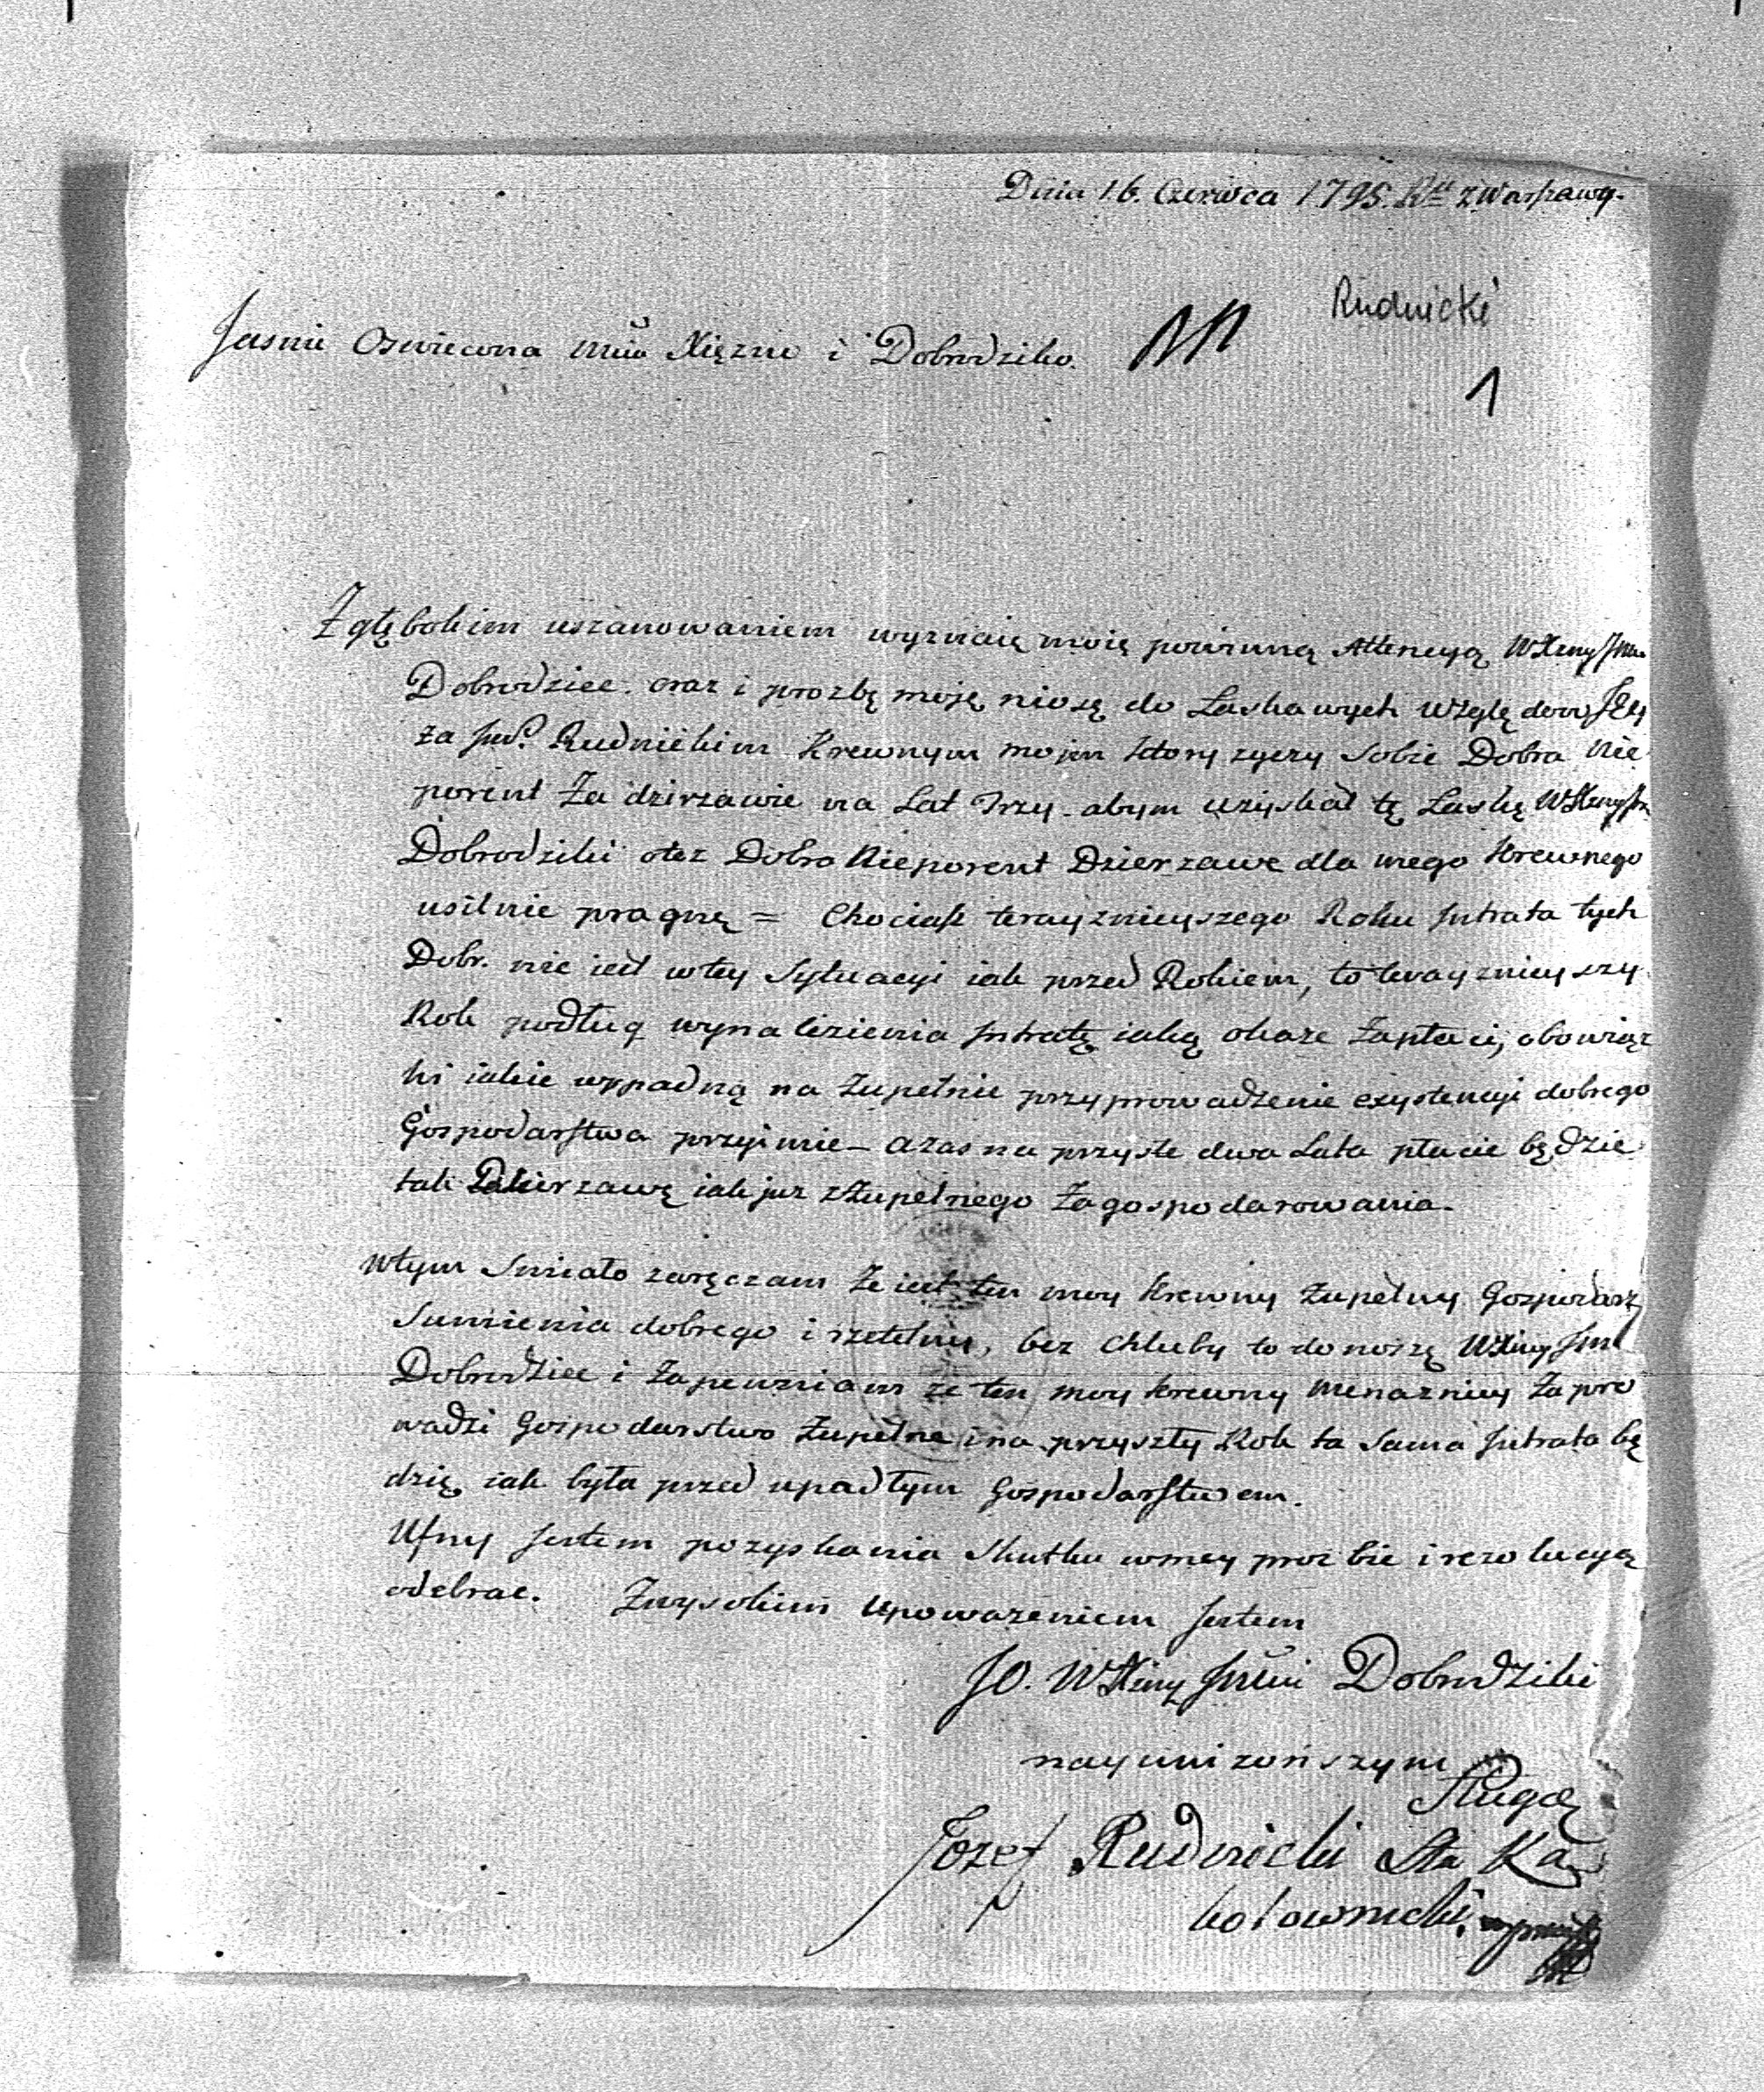 Dnia 16. Czerwca 1795. Rku z Warszawy.
Rudnicki
Jasnie Oswiecona Mcia Xiężno i Dobrodziko.
1
Z głębokim uszanowaniem wyznaię moię powinną Attencyą WXcny Jmci
Dobrodziee. oraz i prozbę moję niosę do Laskawych Względow JEy
za Jmć P. Rudnickim Krewnym mojem ktory zyczy Sobie Dobra Nie
porent Za dzirzawie na Lat Trzy - abym uzyskał tę Laskę WXcny Jm
Dobrodziki otez Dobro Nieporent Dzierzawe dla mego Krewnego
usilnie pragnę = Chociasz terayznieyszego Roku Jntrata tych
Dobr. nie iest w tey Sytuacyi iak przed Rokiem, to terayznieyszy
Rok podług wynalezienia Jntratę iaką okaze Zapłaci, obowiąz
ki iakie wypadną na Zupełnie przyprowadzenie exystencyi dobrego
Gospodarstwa przyimie - a zas na przyszłe dwa Lata płacie będzie
tak Dzierzawę iak juz z Zupełnego Zagospodarowania.
W tym Smiało zaręczam Ze iest ten moy Krewny Zupełny Gospodarz
Sumienia dobrego i rzetelny, bez Chluby to donoszę WXcny Jm
Dobrodziee i Zapewniam ze ten moy krewny Menazniey Zapro
wadzi Gospodarstwo Zupełne i na przyszły Rok ta Sama Jntrata bę
dzię iak była przed upadłym Gospodarstwem.
Ufny Jestem pozyskania Skutku w mey proz bie i rezolucyą
odebrac. Z wysokim Upowazeniem Jestem
JO. WXcny Jmci Dobrodziki
nayunizonszym
Sługą
Jozef Rudnicki Sta Ka